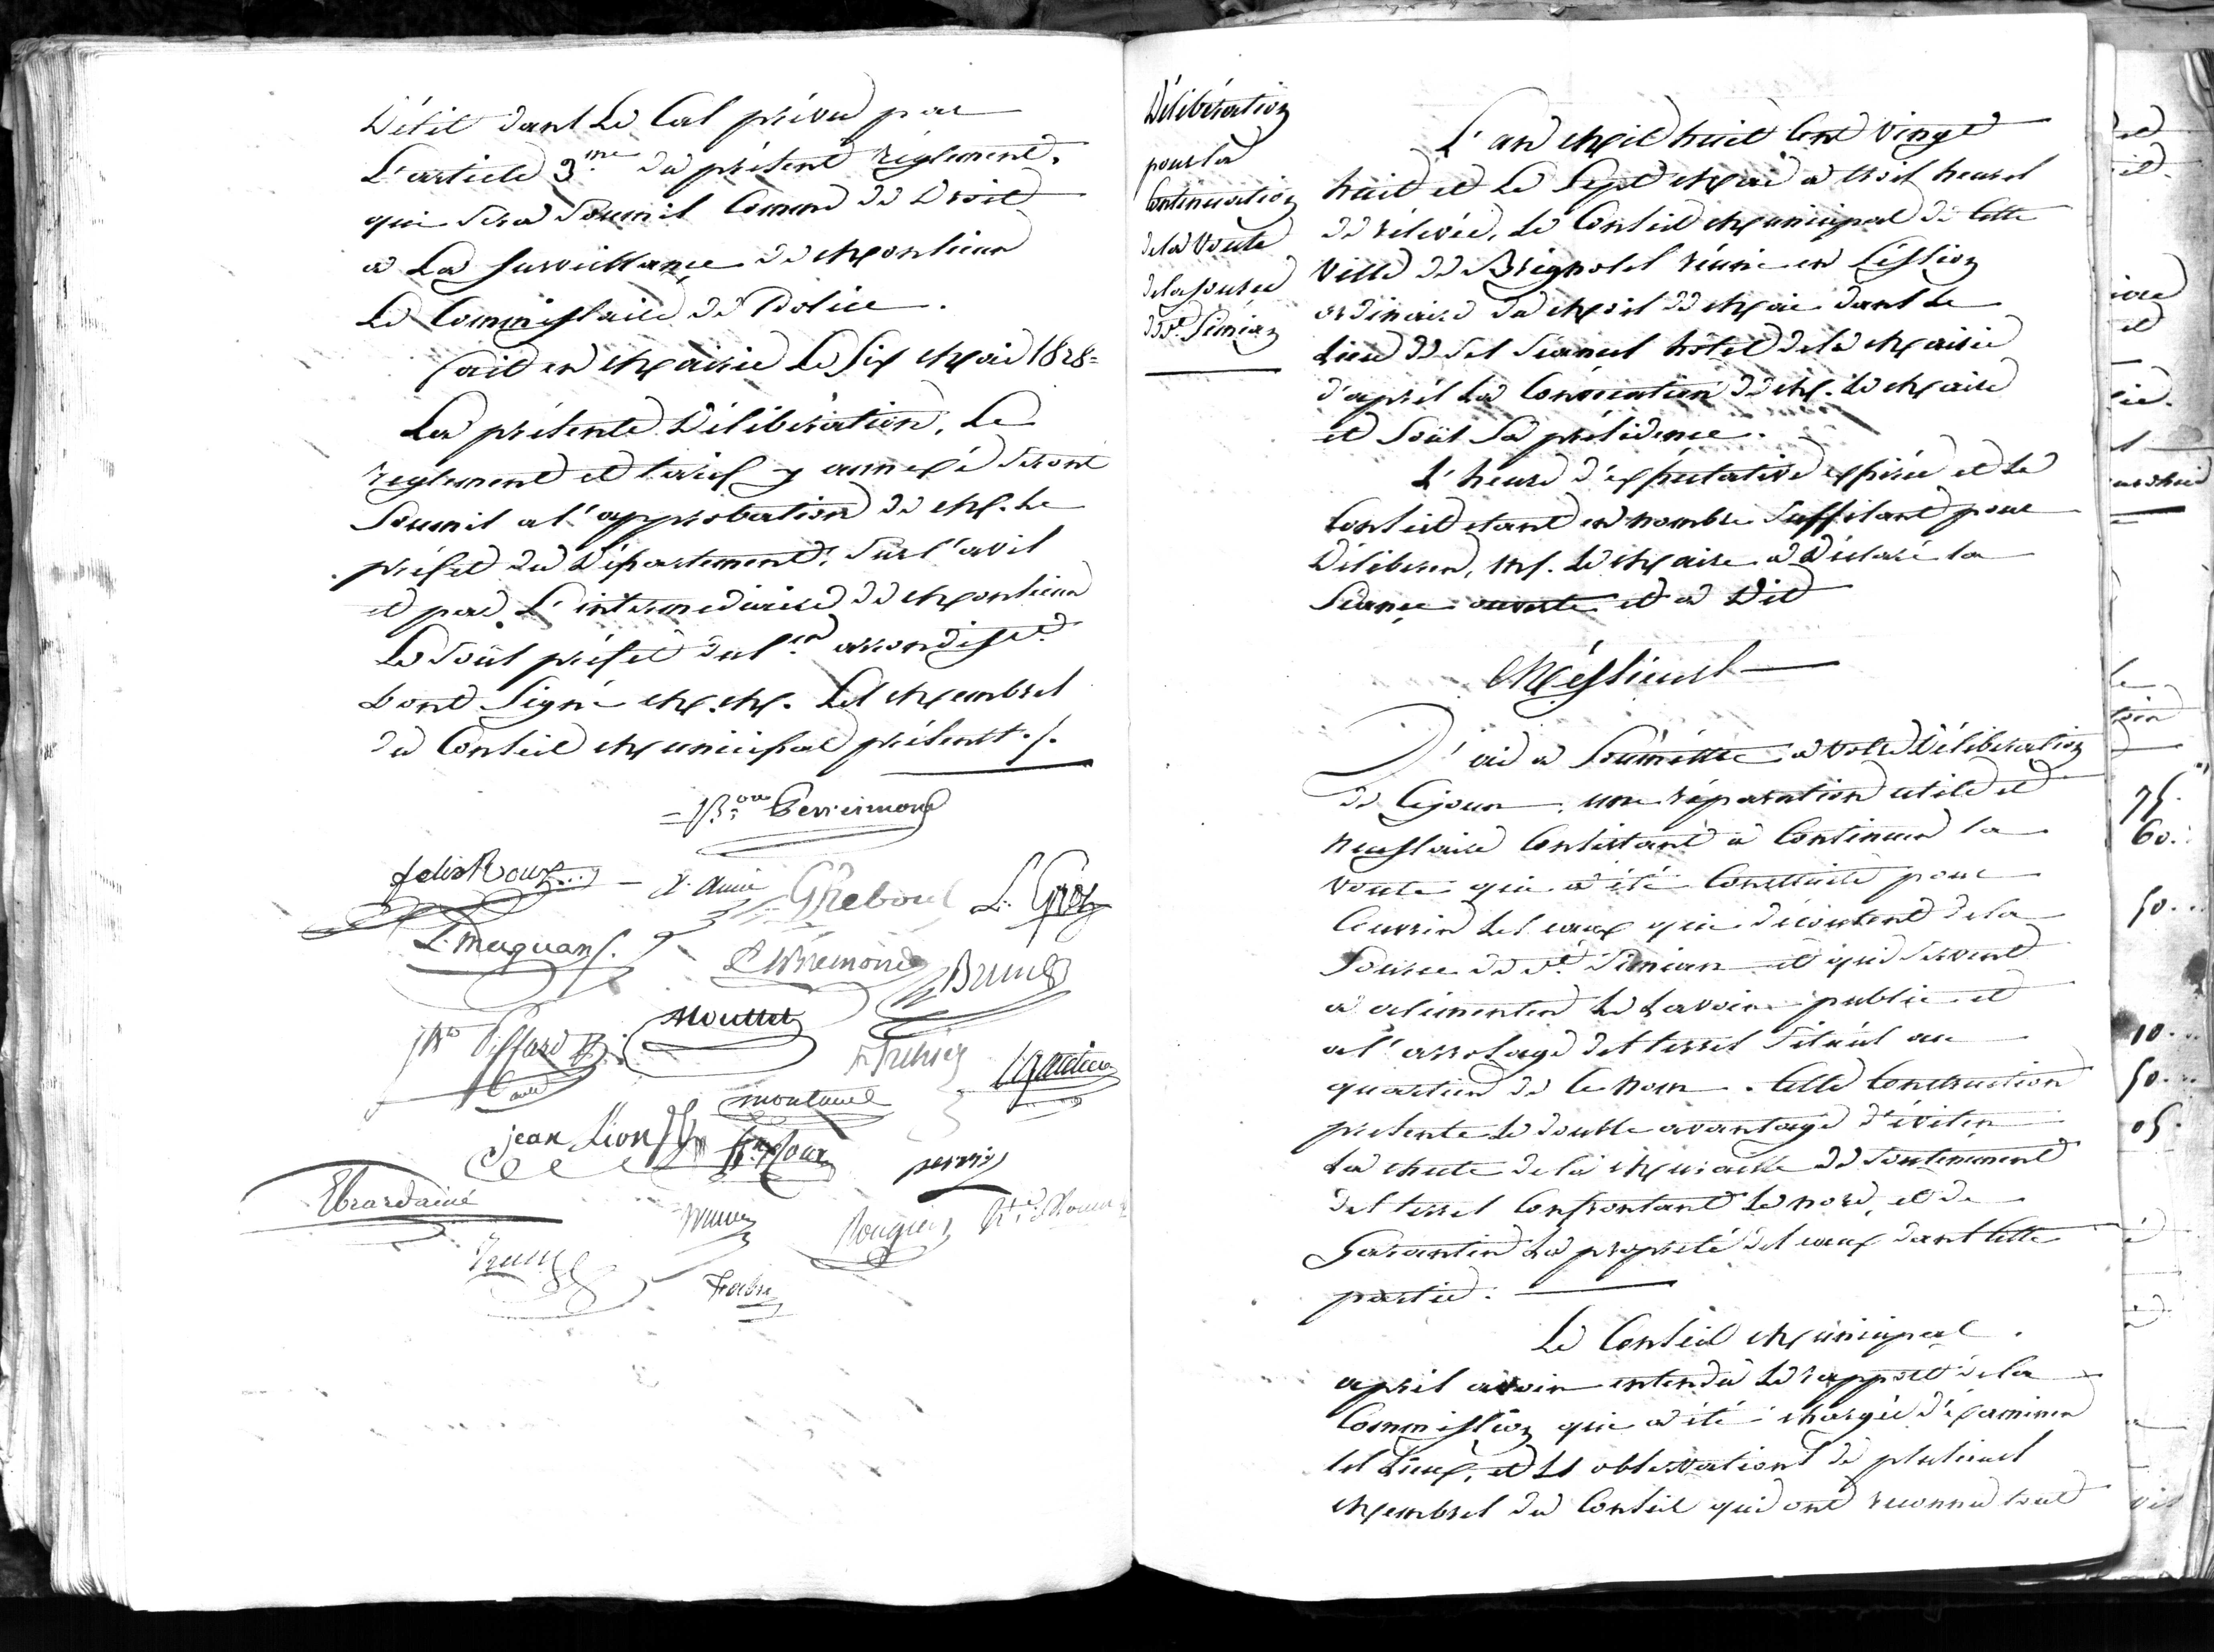 Délit dans Le Cas prévu par
L'article 3.me du présent règlement,
qui sera Soumis Comme de Droit
a La surveillance de Monsieur
Le Commissaire de Police.
fait en Mairie Le Six Mai 1828=
La présente Délibération, Le
reglement et tarif y annexé seront
Soumis a l'approbation de M. Le
préfet du Département, Sur l'avis
et par L'intermediaire de Monsieur
Le Sous préfet du 1.er arrondiss.t
Dont Signé M.M. Les Membres
du Conseil Municipal présents ./.
felix Roux
GReboul
L. Gros
Bremond
Brun
Mouttet
jean Lion
montaud
Ebrard ainé
Rougier
Fabre
Délibération
pour la
Continuation
de la Voute
de la source
de S.t Siméan
L'an Mil huit Cent Vingt
huit et Le Sept Mai a trois heures
de rélevée, Le Conseil Municipal de Cette
Ville de Brignoles réuni en Session
ordinaire du Mois de Mai dans Le
Lieu de Ses Seances hôtel de la Mairie
d'après La Convocation de M. Le Maire
et Sous Sa présidence.
L'heure d'expectative expirée et Le
Conseil etant en nombre Suffisant pour
Déliberer, M. Le Maire a Déclaré la
Séance ouverte et a Dit
Messieurs
J'ai a Soumettre a Votre Délibération
de Cejour une réparation utile et
necessaire Consistant a Continuer la
Voute qui a été Construite pour
Couvrir Les eaux qui découlent de la
Source de S.t Simian et qui Servent
a alimenter Le Lavoir public et
a l'arrosage des terres Situés au
quartier de Ce nom. Cette Construction
présente Le double avantage d'éviter
La chute de la Muraille de Soutènement
des terres Confrontant Le nord, et de
Garantir La propreté des eaux dans Cette
partie.
Le Conseil Municipal.
après avoir entendu Le rapport de la
Commission qui a été chargée d'éxaminer
les Lieux, et Les observations de plusieurs
Membres du Conseil qui ont reconnu tout